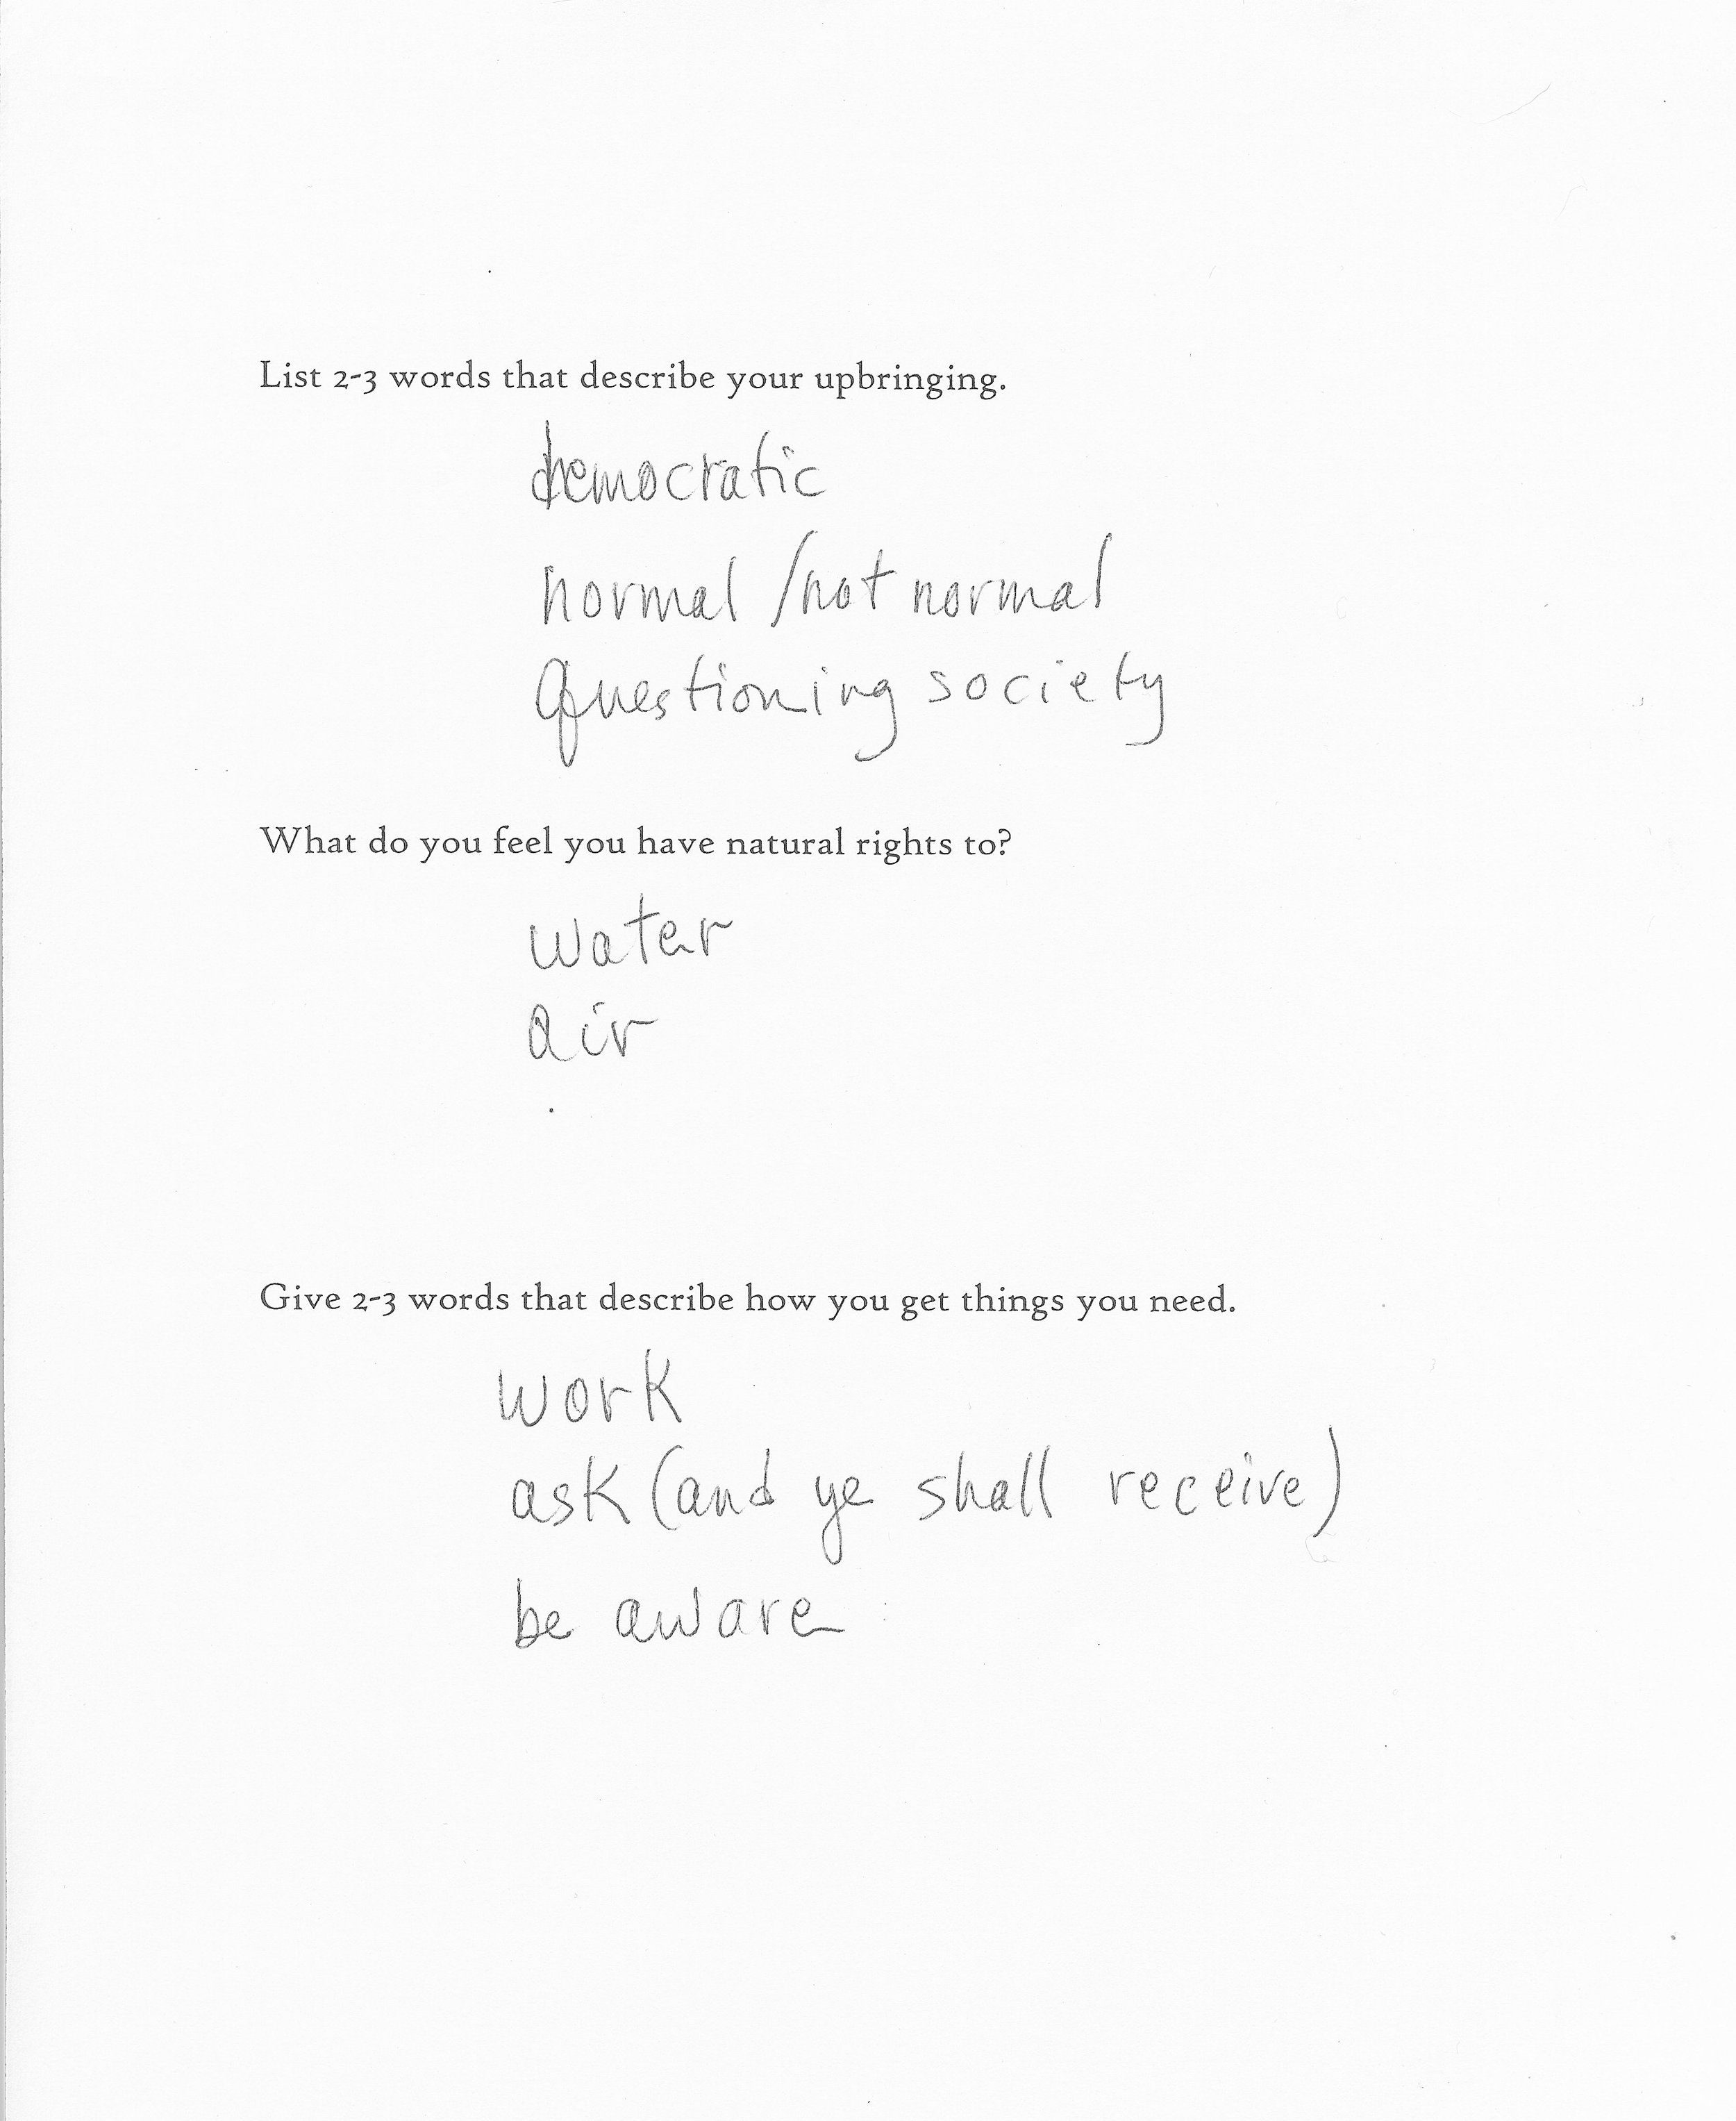 List 2-3 words that describe your upbringing.
democratic
normal /not normal
Questioning society
What do you feel you have natural rights to?
water
air
Give 2-3 words that describe how you get things you need.
work
ask (and ye shall receive)
be aware